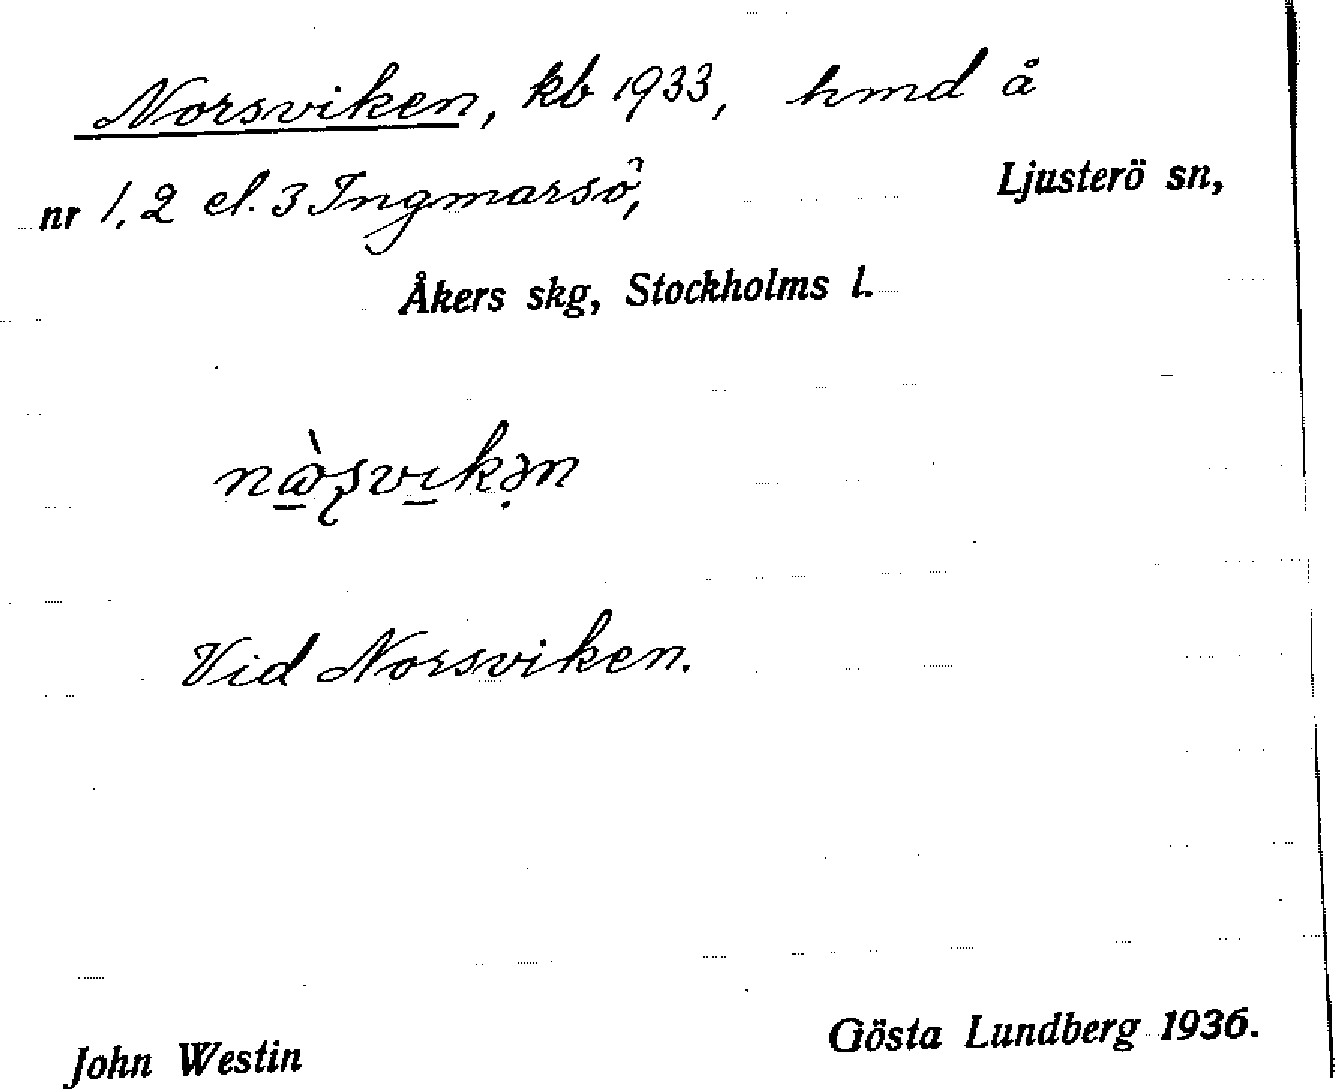 Norsviken, kb 1933, hmd å
nr 1, 2 el. 3 Ingmarsö, Ljusterö sn,
Åkers skg, Stockholms l.
Vid Norsviken.
John Westin Gösta Lundberg 1936.